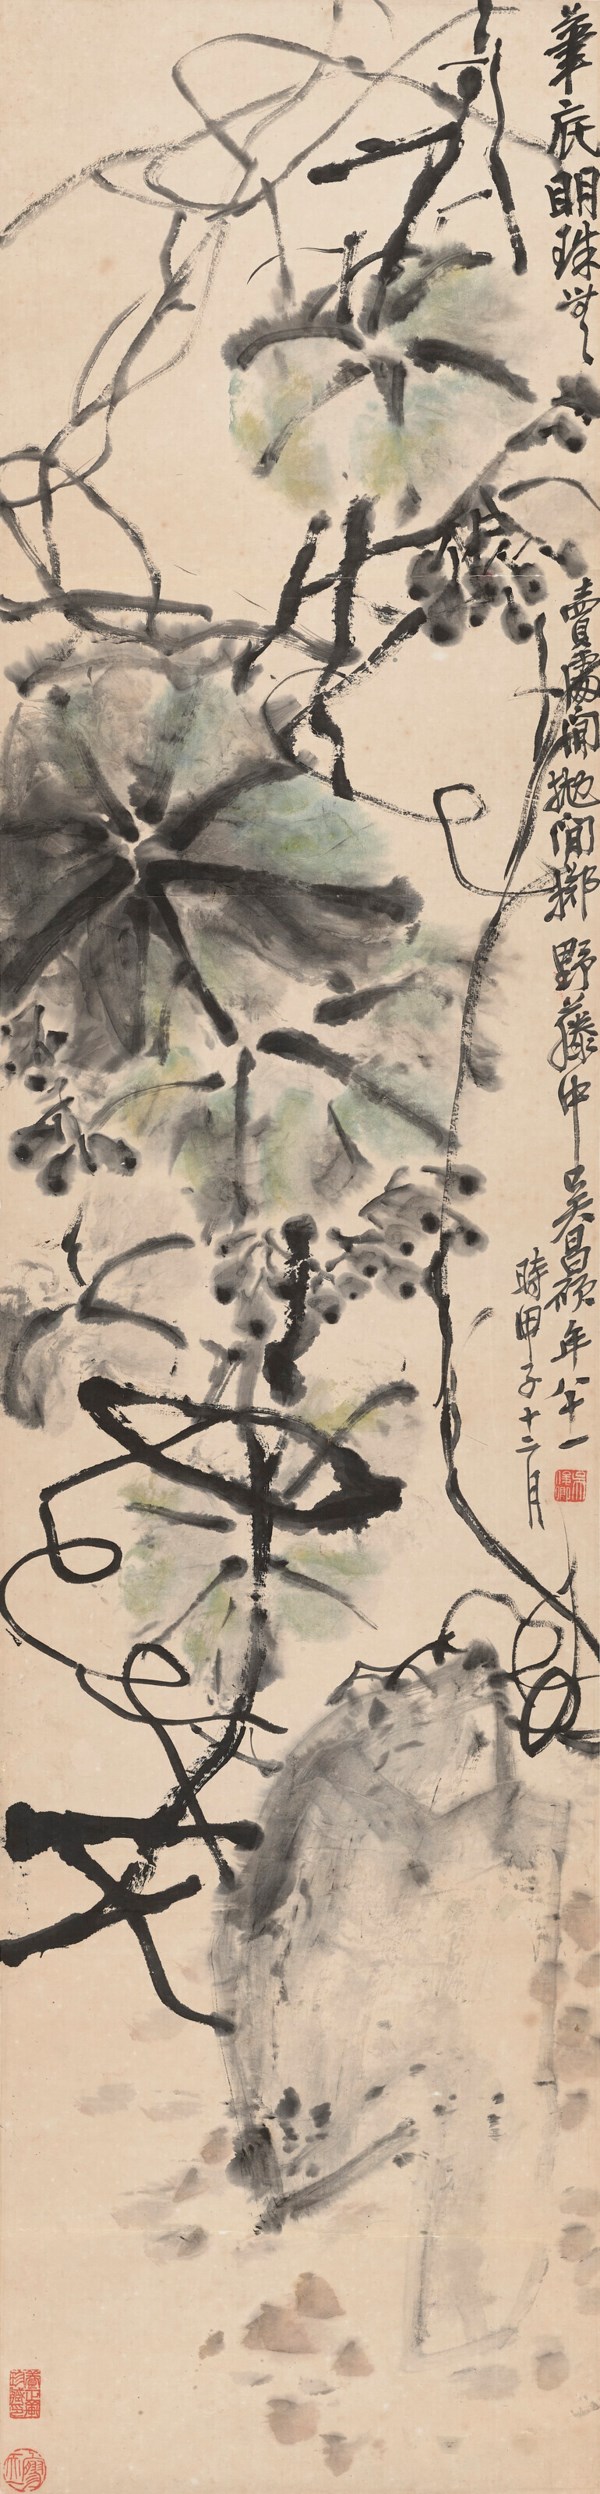 筆底明珠無處賣閒拋閒擲野藤中吳昌碩年八十一
時甲子十二月